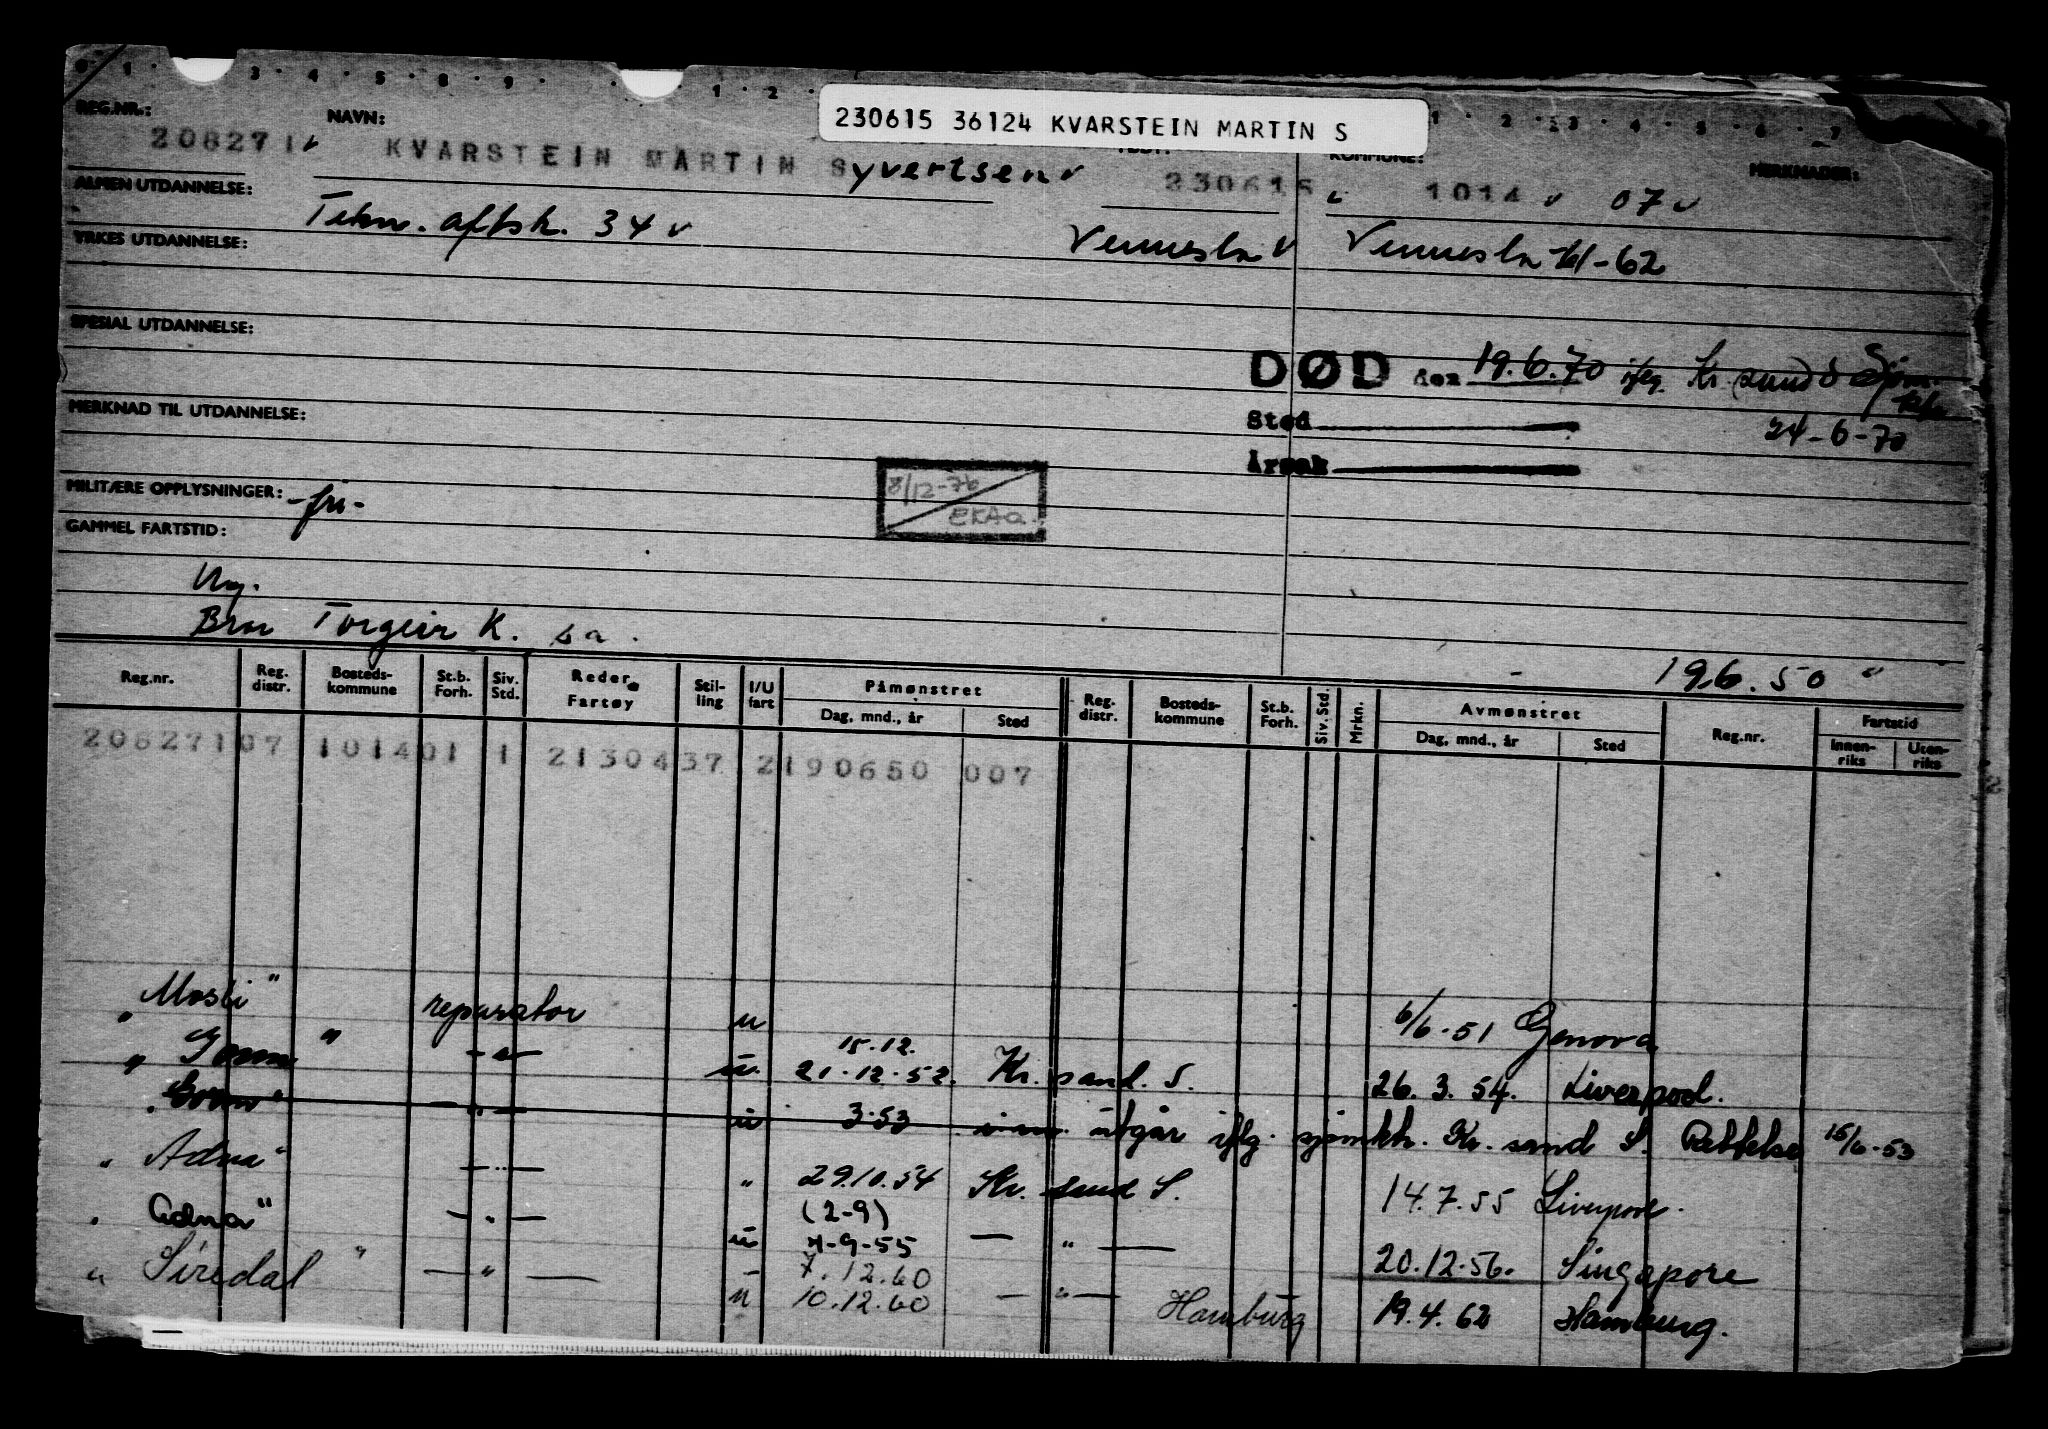 230615 36124 KVARSTEIN MARTIN S
REG.NR.: NAVN: KOMMUNE: MERKNADER:
208271 v KVARSTEIN MARTIN Syvertsen v 230615 v 1014 v 07 v
ALMEN UTDANNELSE: Tekn. aftsk. 34 v Vennesla v Vennesla 61-62
YRKES UTDANNELSE:
SPESIAL UTDANNELSE:
DØD den 19.6.70 iflg. Kr. sand S Sjøm.
MERKNAD TIL UTDANNELSE:
Sted 24-6-70
Årsak
8/12-76
EKAa
MILITÆRE OPPLYSNINGER: -fri-
GAMMEL FARTSTID:
Ug.
Bror Torgeir K. sa.
19.6.50 "
Reg.nr. Reg. distr. Bosteds-kommune St.b. Forh. Siv. Std. Reder Fartøy Stil-ling I/U fart Påmønstret Dag, mnd., år Sted Reg. distr. Bosteds-kommune St.b. Forh. Siv. Std. Mrkn. Avmønstret Dag, mnd., år Sted Reg.nr. Fartstid Innen-riks Uten-riks
208271 07 1014 01 1 21304 37 2 190650 007
"Mosli" reparatør u 6/6-51 Genova
15.12.
"Gorm" -"- u. 21.12.52. Kr. sand. S. 26.3.54. Liverpool.
"Gorm" -"- u 3.53 utgår iflg. sjømktr. Kr. sand S. Rettelse 15/6-53
"Adna" -"- " 29.10.54 Kr. sand S. 14.7.55 Liverpool.
(2-9)
"Adna" -"- u 4-9-55 -"- 20.12.56. Singapore
7.12.60
"Siredal" -"- u 10.12.60 -"- Hamburg 19.4.62 Hamburg.